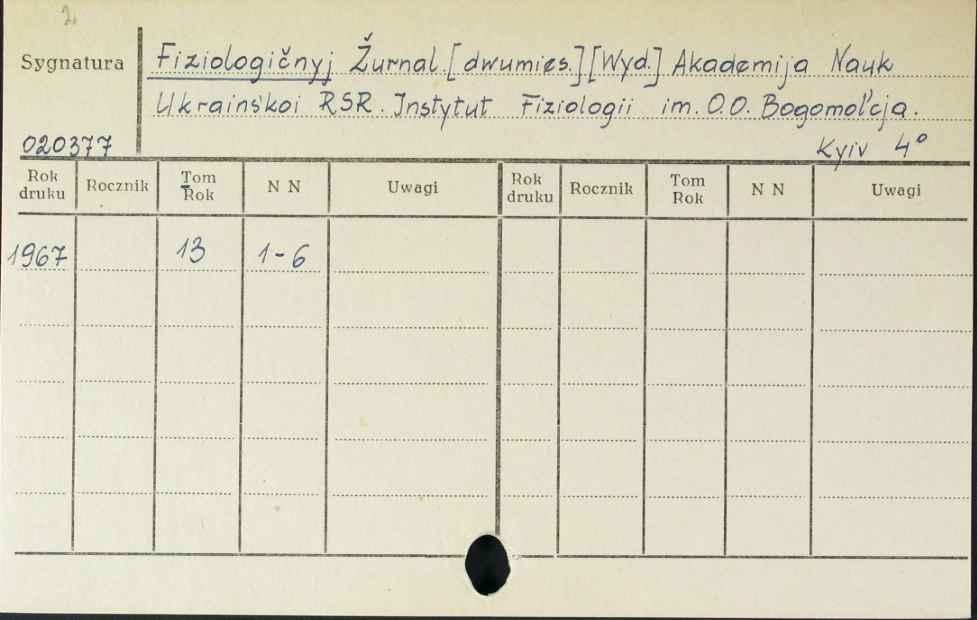 2.
Sygnatura
Fiziologičnyj Žurnal. [dwumies.] [Wyd.] Akademija Nauk
Ukrainśkoi RSR. Instytut Fiziologii im. O.O. Bogomolcja.
020377
Kyiv 4°
Rok druku Rocznik Tom Rok N N Uwagi Rok druku Rocznik Tom Rok N N Uwagi
1967 13 1-6